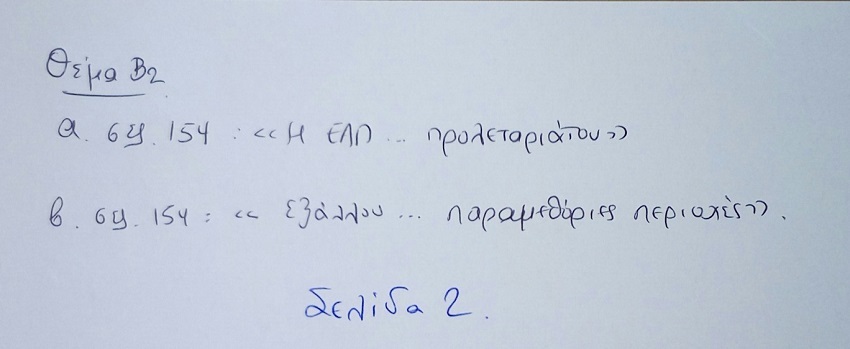 Θέμα Β2
α. σχ. 154 : «Η ΕΛΠ ... προλεταριάτου»
β. σχ. 154 : « Εξάλλου ... παραμεθόριες περιοχές».
Σελίδα 2.